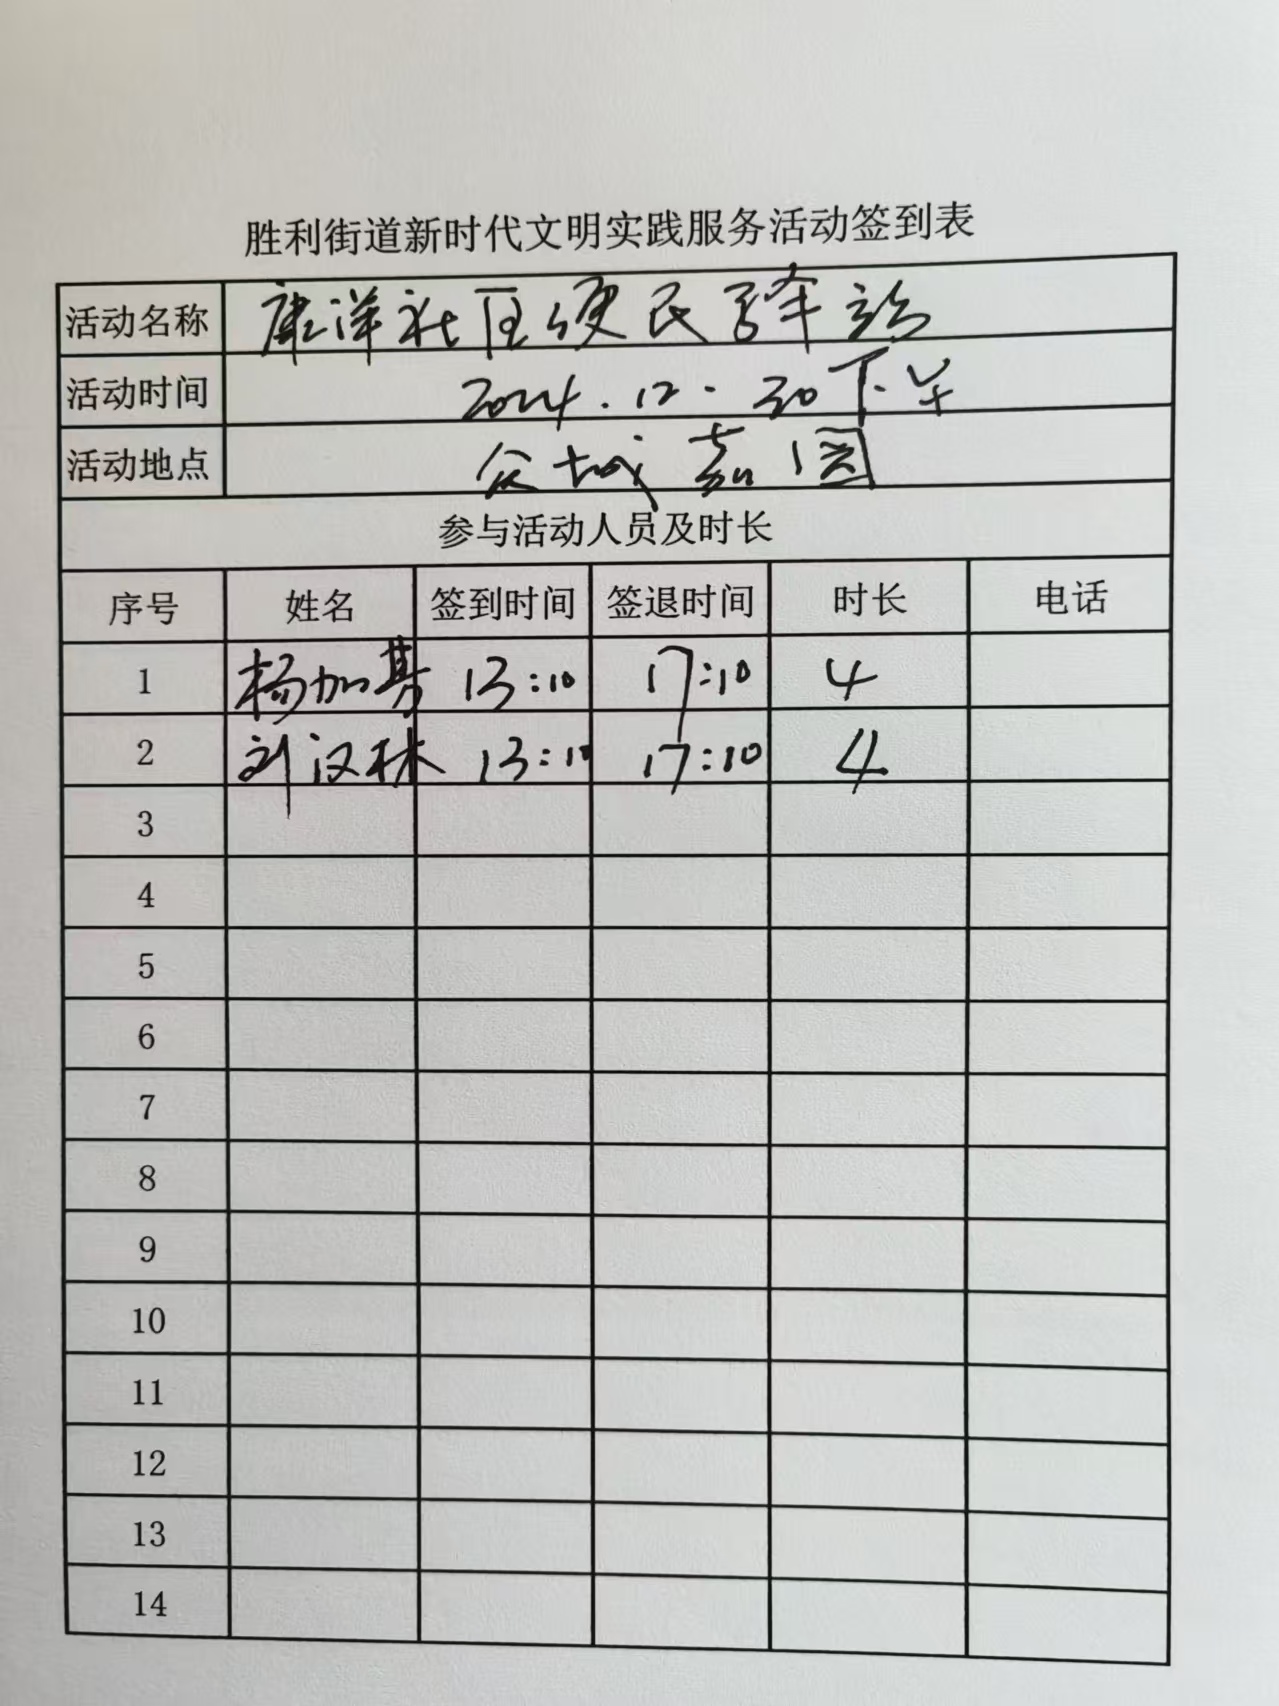 胜利街道新时代文明实践服务活动签到表
活动名称 康洋社区便民驿站
活动时间 2024.12.30下午
活动地点 众城嘉圆
参与活动人员及时长
序号 姓名 签到时间 签退时间 时长 电话
1 杨加 13:10 17:10 4
2 刘汉林 13:10 17:10 4
3
4
5
6
7
8
9
10
11
12
13
14